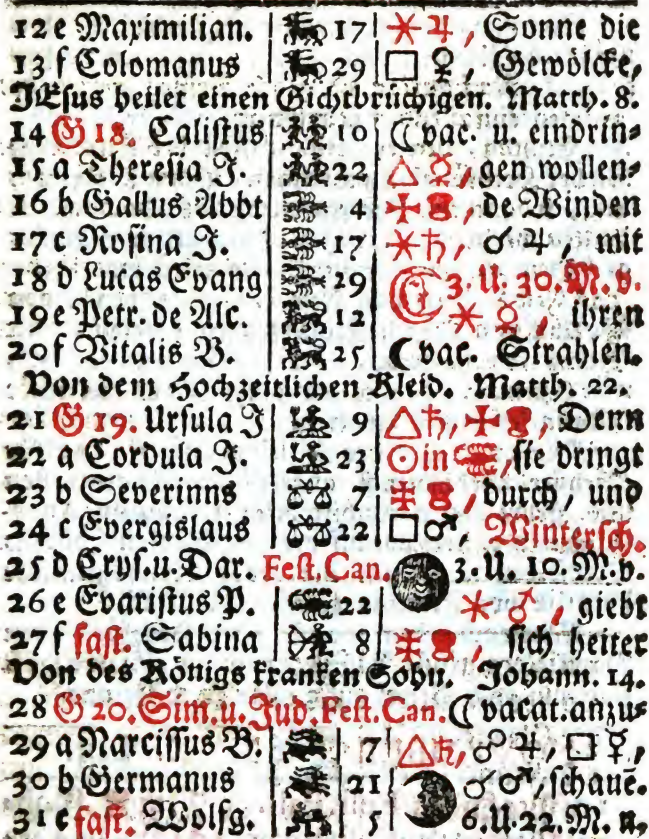 12 e Maximilian. 17 ⚹ ♃, Sonne die
13 f Colomanus 29 □ ♀, Gewölcke,
JEsus heilet einen Gichtbrüchigen. Matth. 8.
14 G 18. Calistus 10 ☾ vac. u. eindrin⸗
15 a Theresia J. 22 △ ☿, gen wollen⸗
16 b Gallus Abbt 4 de Winden
17 c Rosina J. 17 ⚹ ♄, ☌ ♃, mit
18 d Lucas Evang 29 3. U. 30. M. v.
19 e Petr. de Alc. 12 ⚹ ☿, ihren
20 f Vitalis B. 25 ☾ vac. Strahlen.
Von dem Hochzeitlichen Kleid. Matth. 22.
21 G 19. Ursula J 9 △ ♄, Denn
22 a Cordula J. 23 ☉ in ♏, sie dringt
23 b Severinns 7 durch, und
24 c Evergislaus 22 □ ♂, Wintersch.
25 d Crys. u. Dar. Fest. Can. 3. U. 10. M. v.
26 e Evaristus P. 22 ⚹ ♂, giebt
27 f fast. Sabina 8 sich heiter
Von des Königs kranken Sohn. Johann. 14.
28 G 20. Sim. u. Jud. Fest. Can. ☾ vacat. anzu⸗
29 a Narcissus B. 7 △ ♄, ☍ ♃, □ ☿,
30 b Germanus 21 ☌ ♂, schaue.
31 c fast. Wolfg. 5 6. U. 22. M. n,